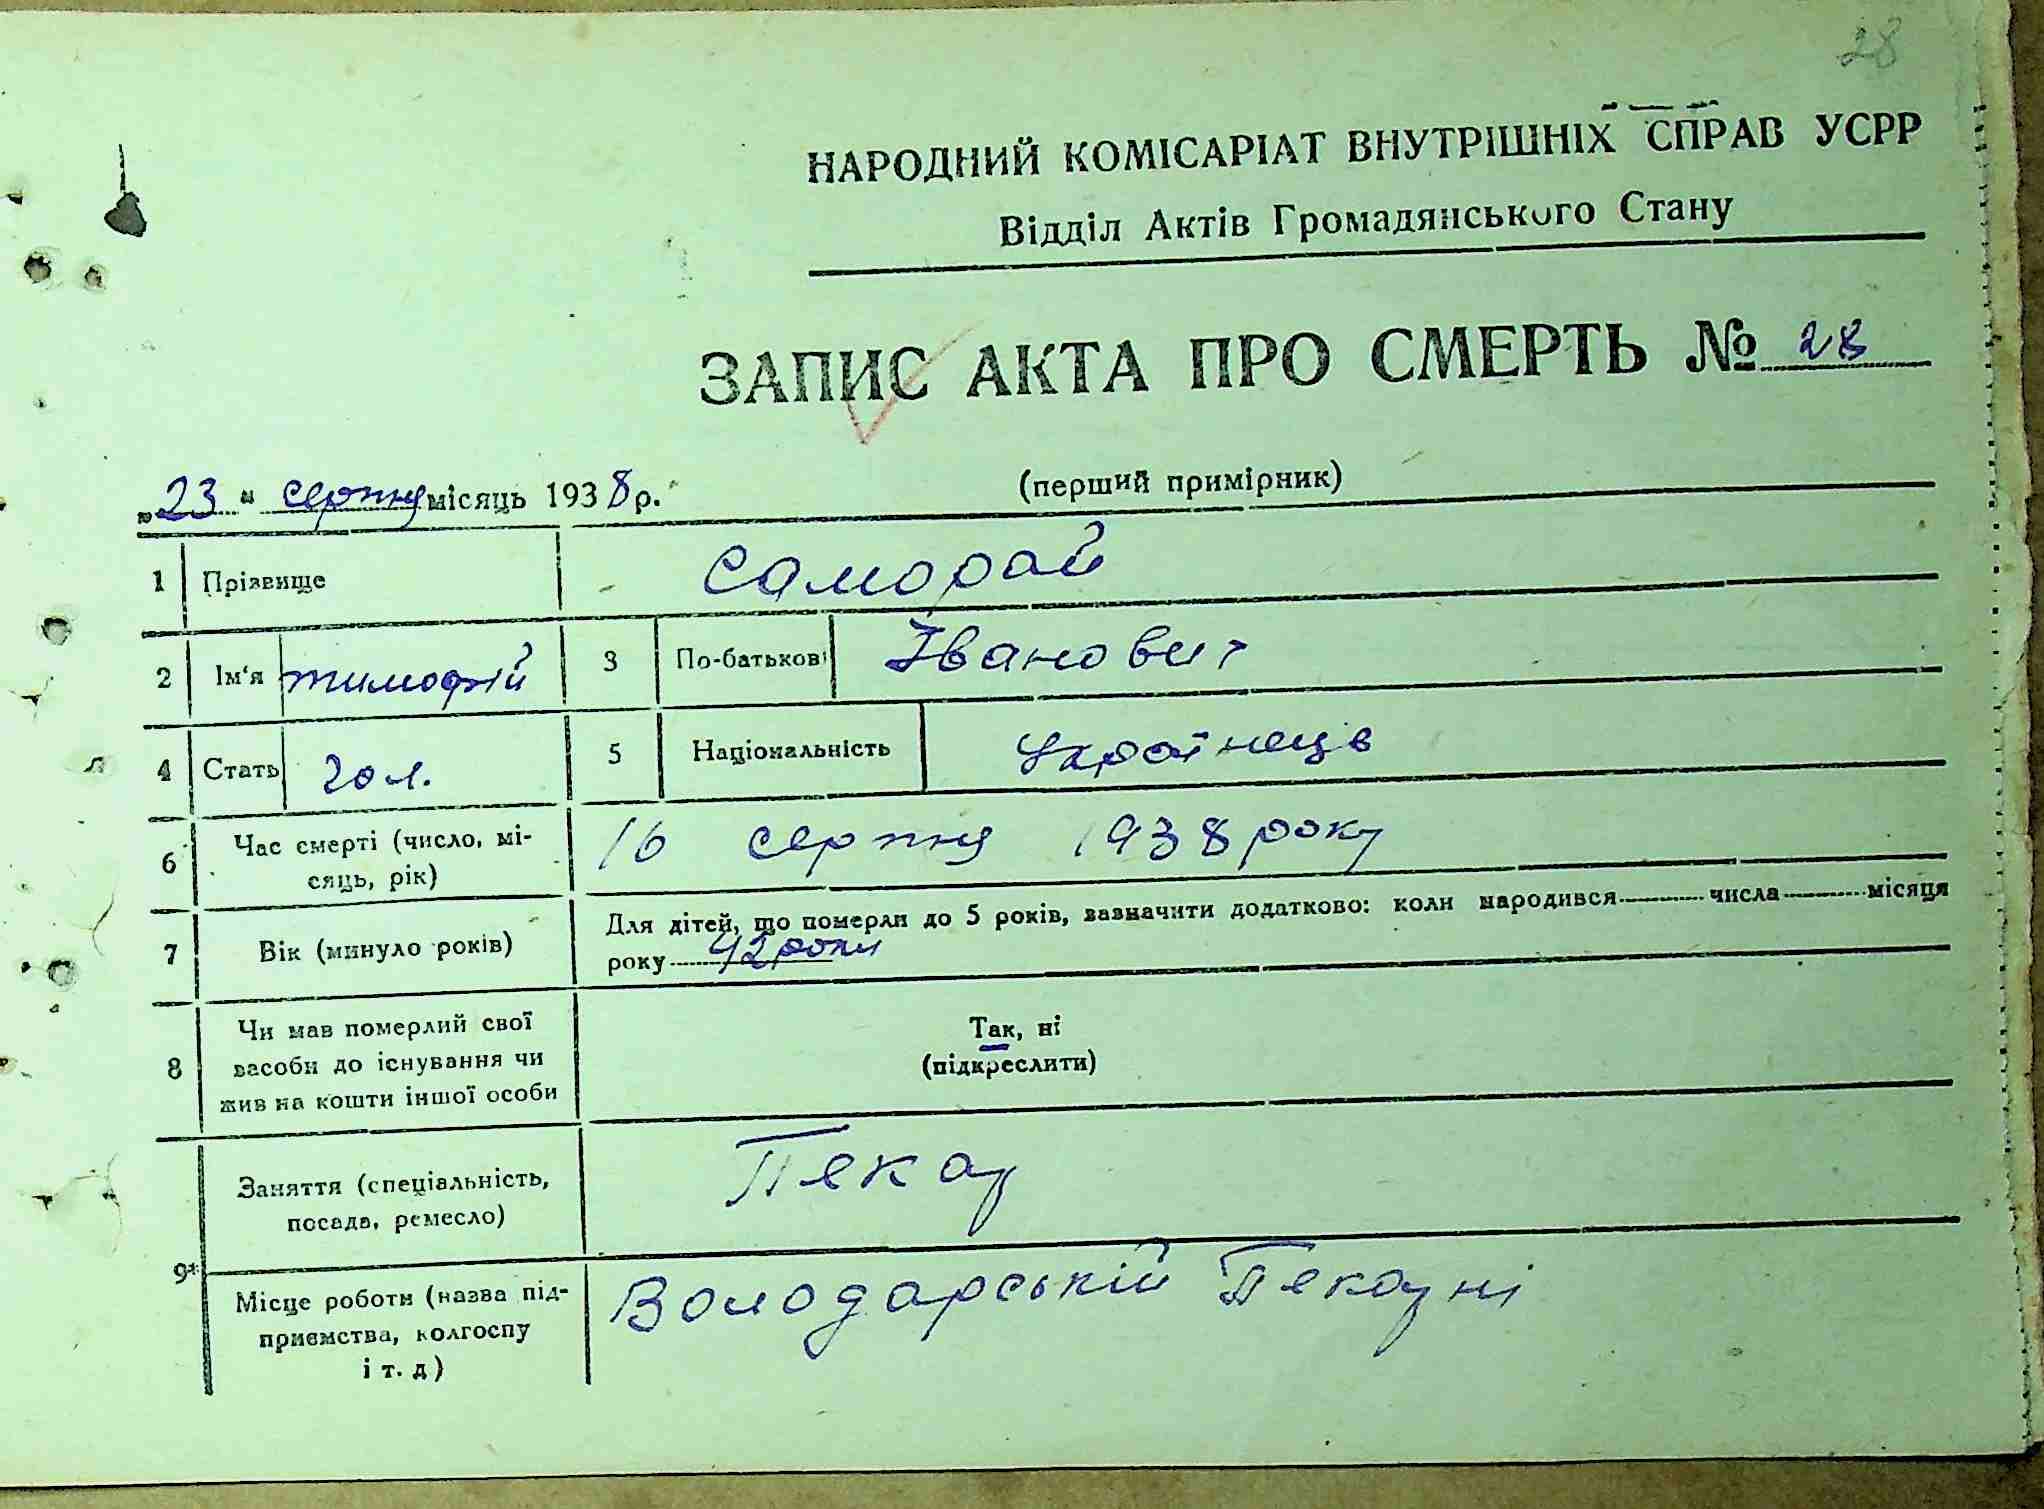 28
НАРОДНИЙ КОМІСАРІАТ ВНУТРІШНІХ СПРАВ УСРР
Відділ Актів Громадянського Стану
ЗАПИС АКТА ПРО СМЕРТЬ № 28
(перший примірник)
„23“ серпня місяць 1938 р.
1 Прізвище Саморай
2 Ім'я тимофій 3 По-батькові Іванович
4 Стать чол. 5 Національність Українець
6 Час смерті (число, мі-
сяць, рік) 16 серпня 1938 року
7 Вік (минуло років) Для дітей, що померли до 5 років, зазначити додатково: коли народився числа місяця
року 42 роки
8 Чи мав померлий свої
засоби до існування чи
жив на кошти іншої особи
Так, ні
(підкреслити)
9* Заняття (спеціальність,
посада, ремесло) Пекар
Місце роботи (назва під-
приємства, колгоспу
і т. д) Володарській Пекарні